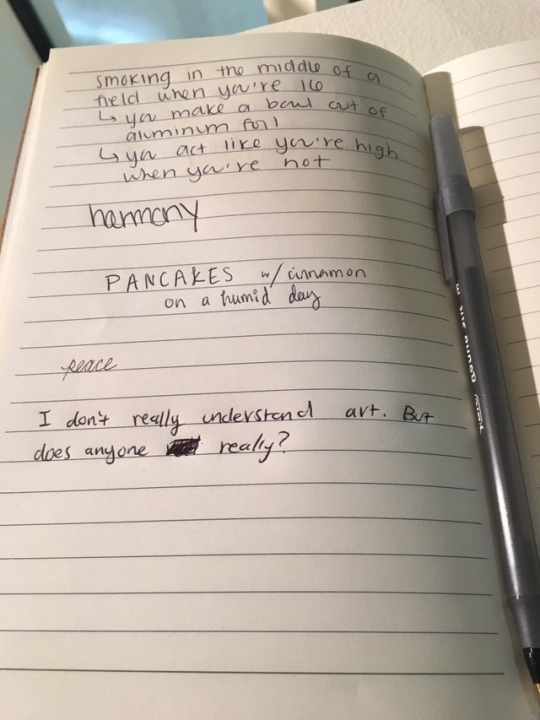 smoking in the middle of a
field when you're 16
↳ you make a bowl out of
aluminum foil
↳ you act like you're high
when you're not
harmony
PANCAKES w/ cinnamon
on a humid day
peace
I don't really understand art. But
does anyone really?